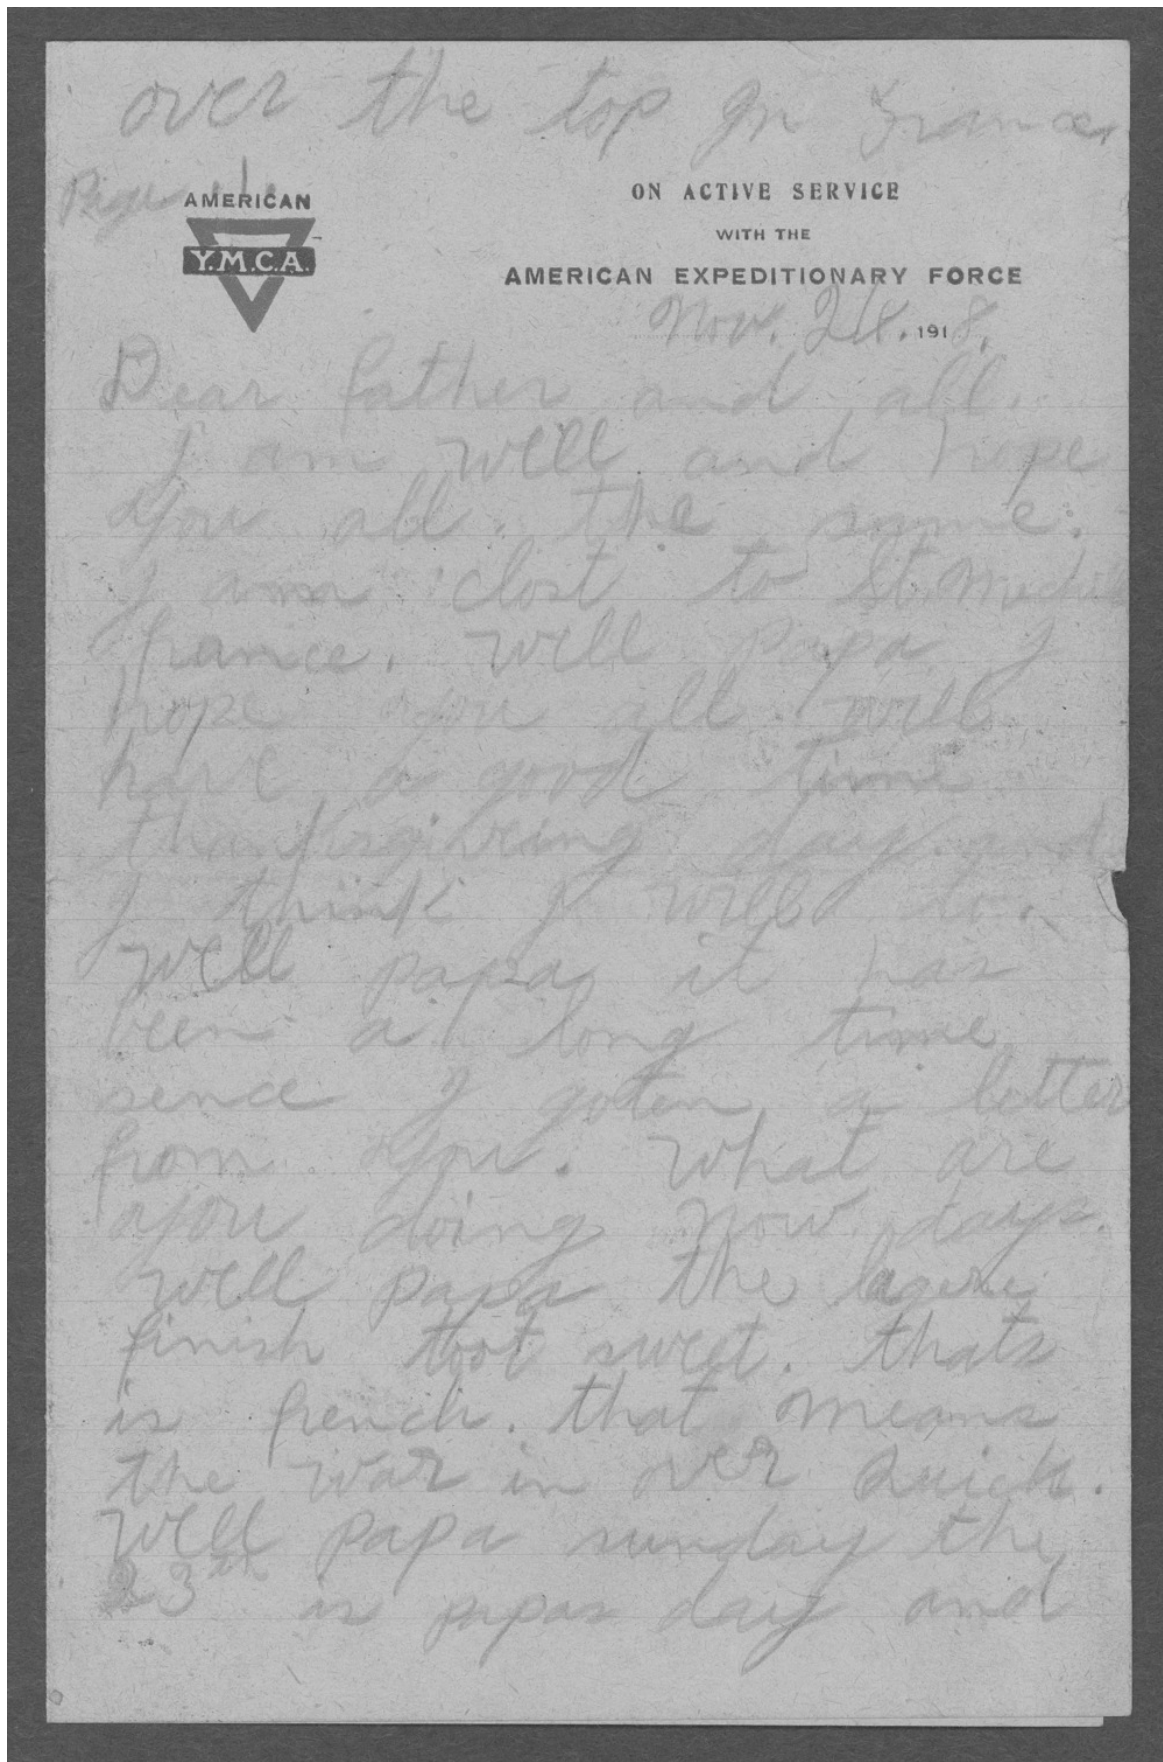 over the top In France
Page 1
AMERICAN
Y.M.C.A.
ON ACTIVE SERVICE
WITH THE
AMERICAN EXPEDITIONARY FORCE
Nov. 1918.
Dear father and all.
I am well and hope
you all the same.
I am clost to St.
france. Well Papa I
hope you all will
have a good time
thanksgiving day. and
I think I will do.
Well papa it has
been a long time
sence I goten a letter
from you. What are
you doing now days.
Well papa the
finish toot sweet. thats
is french. that means
the war is over quick.
Well papa sunday the
23th is papas day and